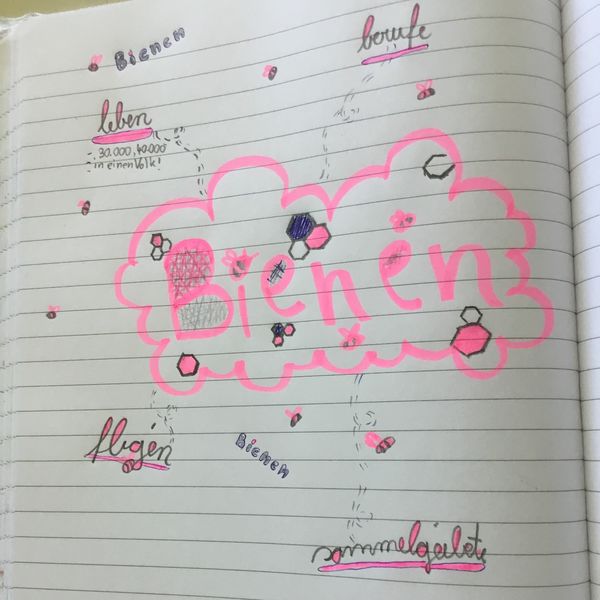 Bienen
berufe
leben
- 30.000, 40.000
in einen Volk!
Bienen
fligen
Bienen